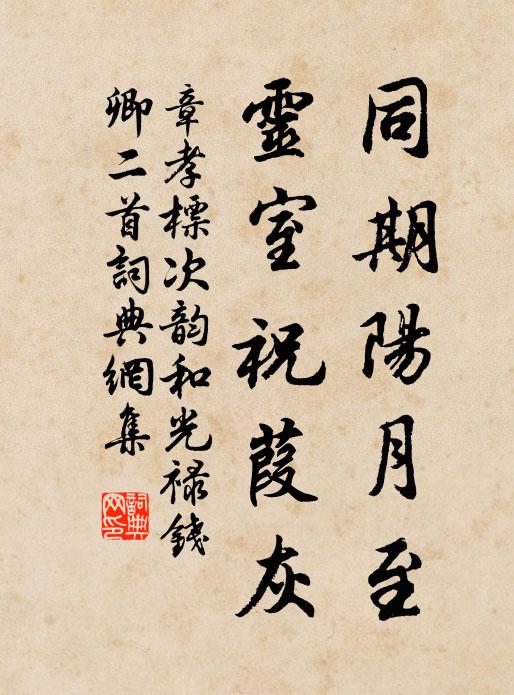 同期陽月至
靈室祝葭灰
章孝標次韵和光禄錢
卿二首詞典網集
詞典
网印